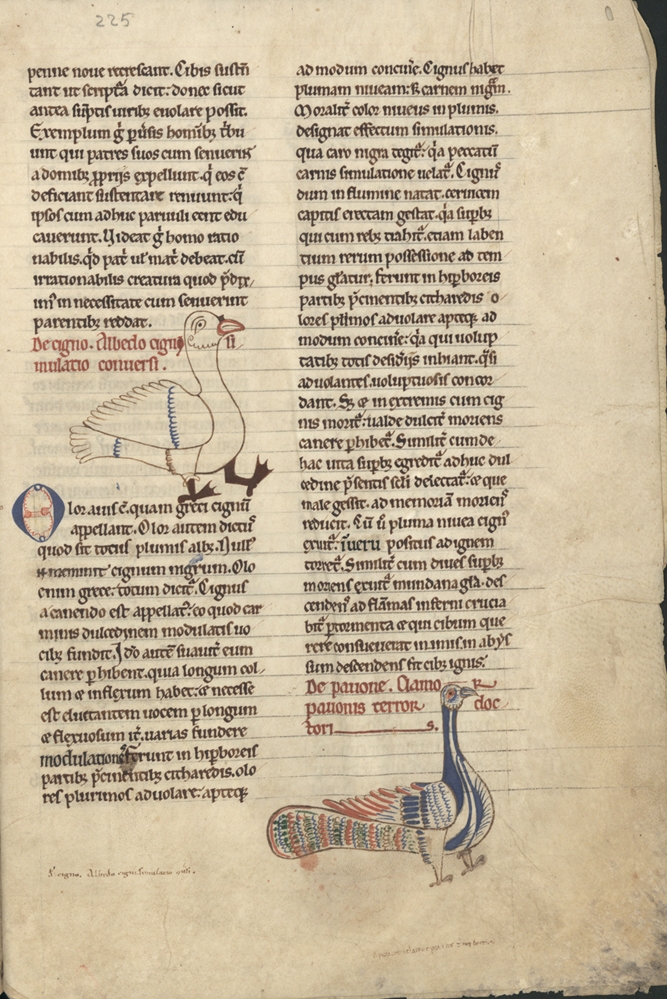 225
penne noue recrescant. Cibis sustẽ
tant ut scriptã dicit: donec sicut
antea sũptis uirib; euolare possit.
Exemplum g̃ p̃sis homĩb; t̃bu
unt qui patres suos cum senuerĩt
a domib; ꝓprijs expellunt. q̃ eos c̃
deficiant sustentare renuunt: q̃
ipsos cum adhuc paruuli eent edu
cauerunt. Uideat g̃ homo ratio
nabilis. qd̃ pat̃ ul̃ mat̃ debeat. cũ
irrationabilis creatura quod p̃dix
im̃ in necessitate cum senuerint
parentib; reddat.
De cigno. Albedo cigni si
mulatio conuersi.
Olor auis ẽ. quam greci cignũ
appellant. Olor autem dictũ
quod sit totus plumis alb;. Null'
eñ meminit cignum nigrum. Olo
enim grece: totum dicit̃. Cignus
a canendo est appellat̃: eo quod car
minis dulcedinem modulatis uo
cib; fundit. Ido autẽ suauit̃ eum
canere ꝑhibent. quia longum col-
lum & inflexum habet: & necesse
est eluctantem uocem ꝑ longum
& flexuosum it̃. uarias fundere
modulationes. Ferunt in hiꝑboreis
partib; p̃cinentib; citharedis. olo
res plurimos aduolare. apteq;
ad modum concin̄e. Cignus habet
plumam niueam: & carnem nigrã.
Moralit̃ color niueus in plumis.
designat effectum simulationis.
qua caro nigra tegit̃: q̃a peccatũ
carnis simulatione uelat̃. Cignus
dum in flumine natat. ceruicem
capitis erectam gestat. q̃a supb;
qui cum reb; t̃ahit̃. etiam laben
tium rerum possessione ad tem
pus gl̃atur. ferunt in hiꝑboreis
partib; p̃cinentib; citharedis o
lores pl̃imos aduolare apteq; ad
modum concin̄e: q̃a qui uolup
tatib; totis desidijs inhiant. q̃si
aduolantes. uoluptuosis concor
dant. S; & in extremis cum cig
nus morit̃: ualde dulcit̃ moriens
canere ꝑhibet̃. Similit̃ cum de
hac uita supb; egredit̃ adhuc dul
cedine p̃sentis sẽli delectat̃: & que
male gessit. ad memoriã moriens
reducit. Cũ ũ pluma niuea cignus
exuit̃. ĩ ueru positus ad ignem
torret̃. Similit̃ cum diues supb;
moriens exuit̃ mundana gl̃a. des
cendens ad flãmas inferni crucia
bit̃ ꝑ tormenta & qui cibum que
rere consueuerat in imis. in abys
sum descendens fit cib; ignis.
De pauone. Clamo R
pauonis terror doc
tori s.
De cigno. Albedo cigni simulatio